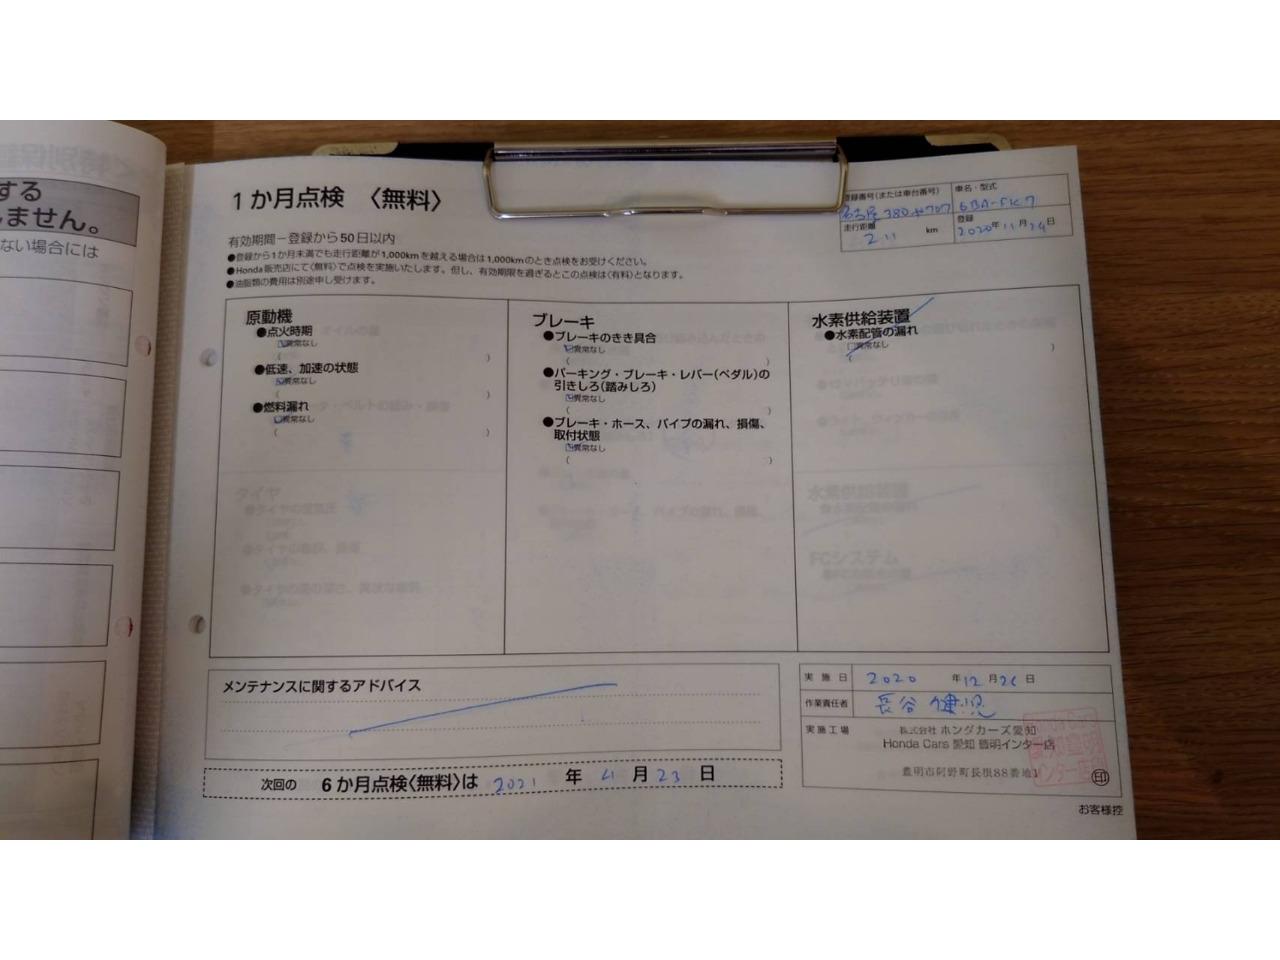 する
しません。
ない場合には
1か月点検 〈無料〉
登録番号(または車台番号)
車名・型式
名古屋 380 や 707
6BA-FK7
走行距離
211 km
登録
2020年11月24日
有効期間ー登録から50日以内
●登録から1か月未満でも走行距離が1,000kmを越える場合は1,000kmのとき点検をお受けください。
●Honda販売店にて〈無料〉で点検を実施いたします。但し、有効期限を過ぎるとこの点検は〈有料〉となります。
●油脂類の費用は別途申し受けます。
原動機
●点火時期
異常なし
( )
●低速、加速の状態
異常なし
( )
●燃料漏れ
異常なし
( )
ブレーキ
●ブレーキのきき具合
異常なし
( )
●パーキング・ブレーキ・レバー(ペダル)の
引きしろ(踏みしろ)
異常なし
( )
●ブレーキ・ホース、パイプの漏れ、損傷、
取付状態
異常なし
( )
水素供給装置
●水素配管の漏れ
異常なし
( )
メンテナンスに関するアドバイス
次回の 6か月点検〈無料〉は 2021 年 4 月 23 日
実施日 2020 年 12 月 26 日
作業責任者 長谷 健児
実施工場
株式会社 ホンダカーズ愛知
Honda Cars 愛知 豊明インター店
豊明市阿野町長根88番地1
印
お客様控